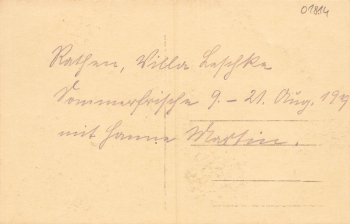 01814
Rathen, Villa Leschke
Sommerfrische 9. – 21. Aug. 19
mit Hanne Martin.